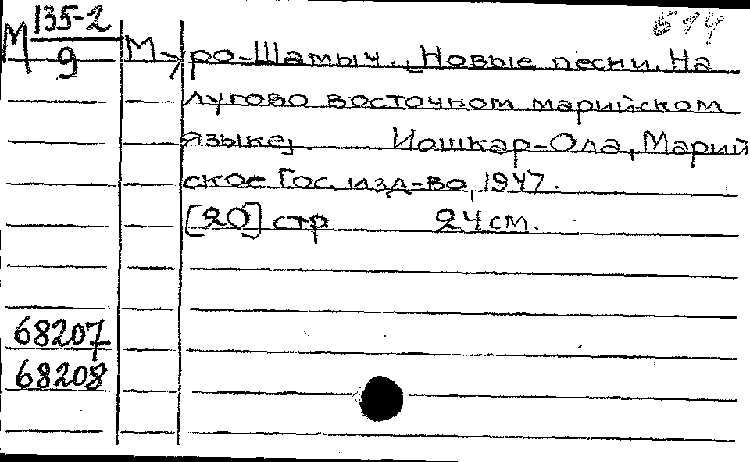 614
М 135-2
9
М-ро-Шамыч. Новые песни. На
лугово восточном марийском
языке. Йошкар-Ола, Марий
ское Гос. изд-во, 1947.
[20] стр 24 см.
68207
68208